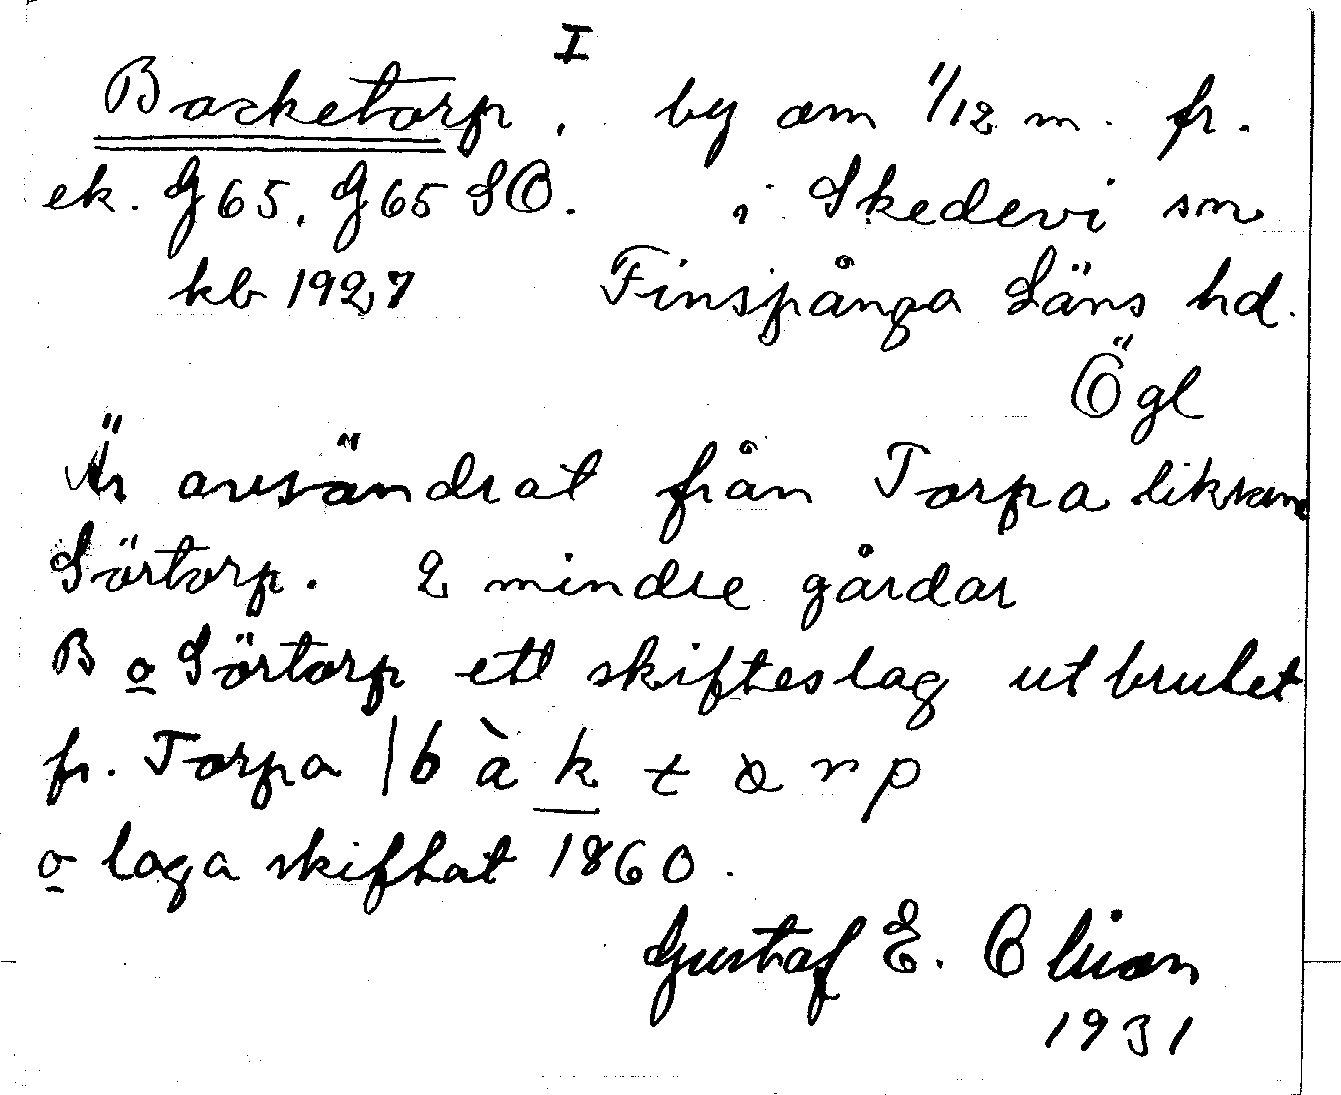 I
Backetorp, by om 1/12 m. fr.
ek. G65. G65 SO. i Skedevi sn
kb 1927 Finspånga Läns hd.
Ögl
Är avsöndrat från Torpa liksom
Sörtorp. 2 mindre gårdar
B o Sörtorp ett skifteslag utbrutet
fr. Torpa | b à k t ɷ r p
o laga skiftat 1860.
Gustaf E. Olison
1931